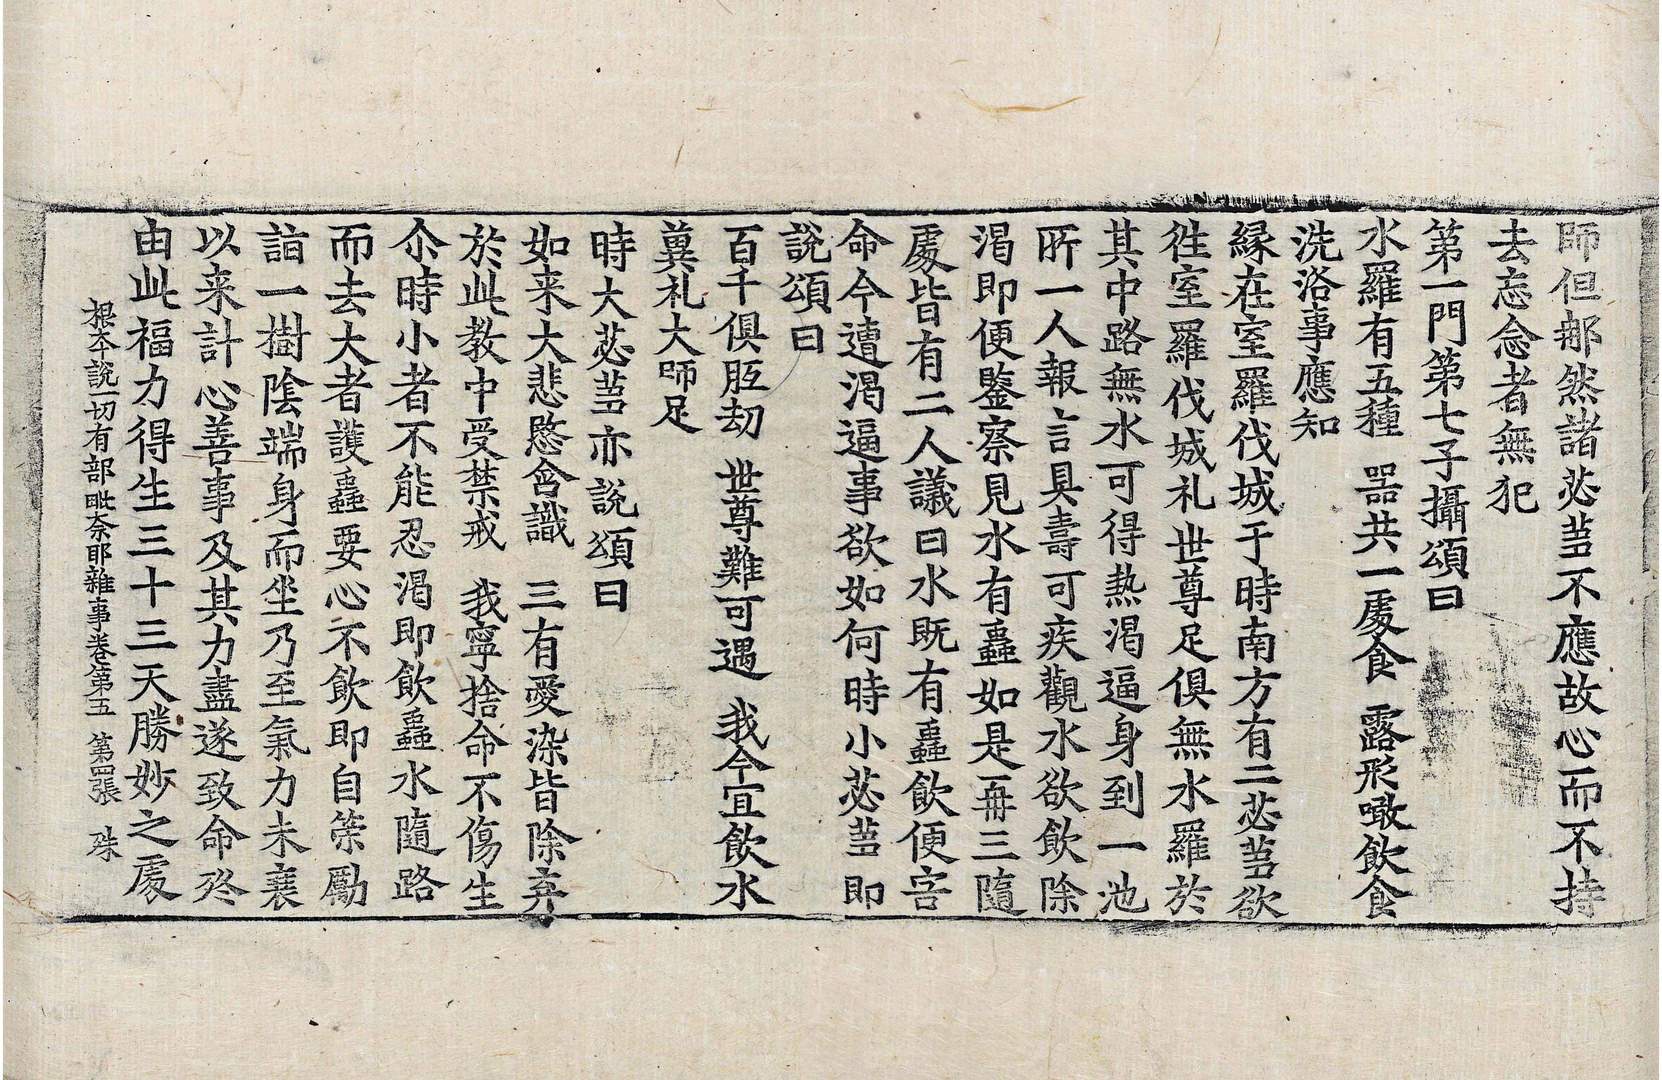 師但鄔然諸苾蒭不應故心而不持
去忘念者無犯
第一門第七子攝頌曰
水羅有五種　器共一處食　露形噉飲食
洗浴事應知
緣在室羅伐城于時南方有二苾蒭欲
徃室羅伐城礼世尊足俱無水羅於
其中路無水可得熱渴逼身到一池
所一人報言具壽可疾觀水欲飲除
渴即便鑒察見水有蟲如是再三隨
處皆有二人議曰水既有蟲飲便害
命今遭渴逼事欲如何時小苾蒭即
說頌曰
百千俱胝劫　世尊難可遇　我今宜飲水
兾礼大師足
時大苾蒭亦說頌曰
如来大悲愍含識　三有愛染皆除弃
於此教中受禁戒　我寧捨命不傷生
尒時小者不能忍渴即飲蟲水隨路
而去大者護蟲要心不飲即自策勵
詣一樹陰端身而坐乃至氣力未衰
以来計心善事及其力盡遂致命終
由此福力得生三十三天勝妙之處
根本說一切有部毗奈耶雜事卷第五　第四張　殊